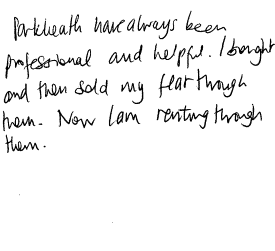 Parkheath have always been
professional and helpful. I bought
and then sold my flat through
them. Now I am renting through
them.